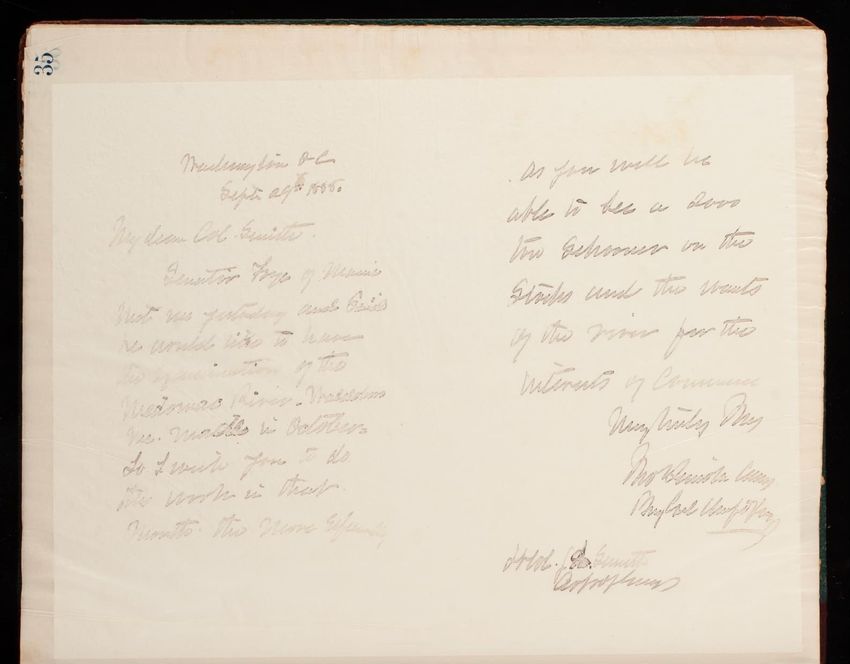 35
Washington D C
Sept 29th 1888.
My dear Col. Smith.
Senator Frye of Maine
Met me yesterday and Said
he would like to have
the examination of the
Medomac River. Waldoboro
Me. Made in October.
So I wish you to do
the work in that
Month. the More Especially
As you will be
able to See a 2000
ton Schooner on the
Stocks and the wants
of the river for the
interests of Commerce
Very truly
Thos
Lt Col. Smith
Corps of Engrs